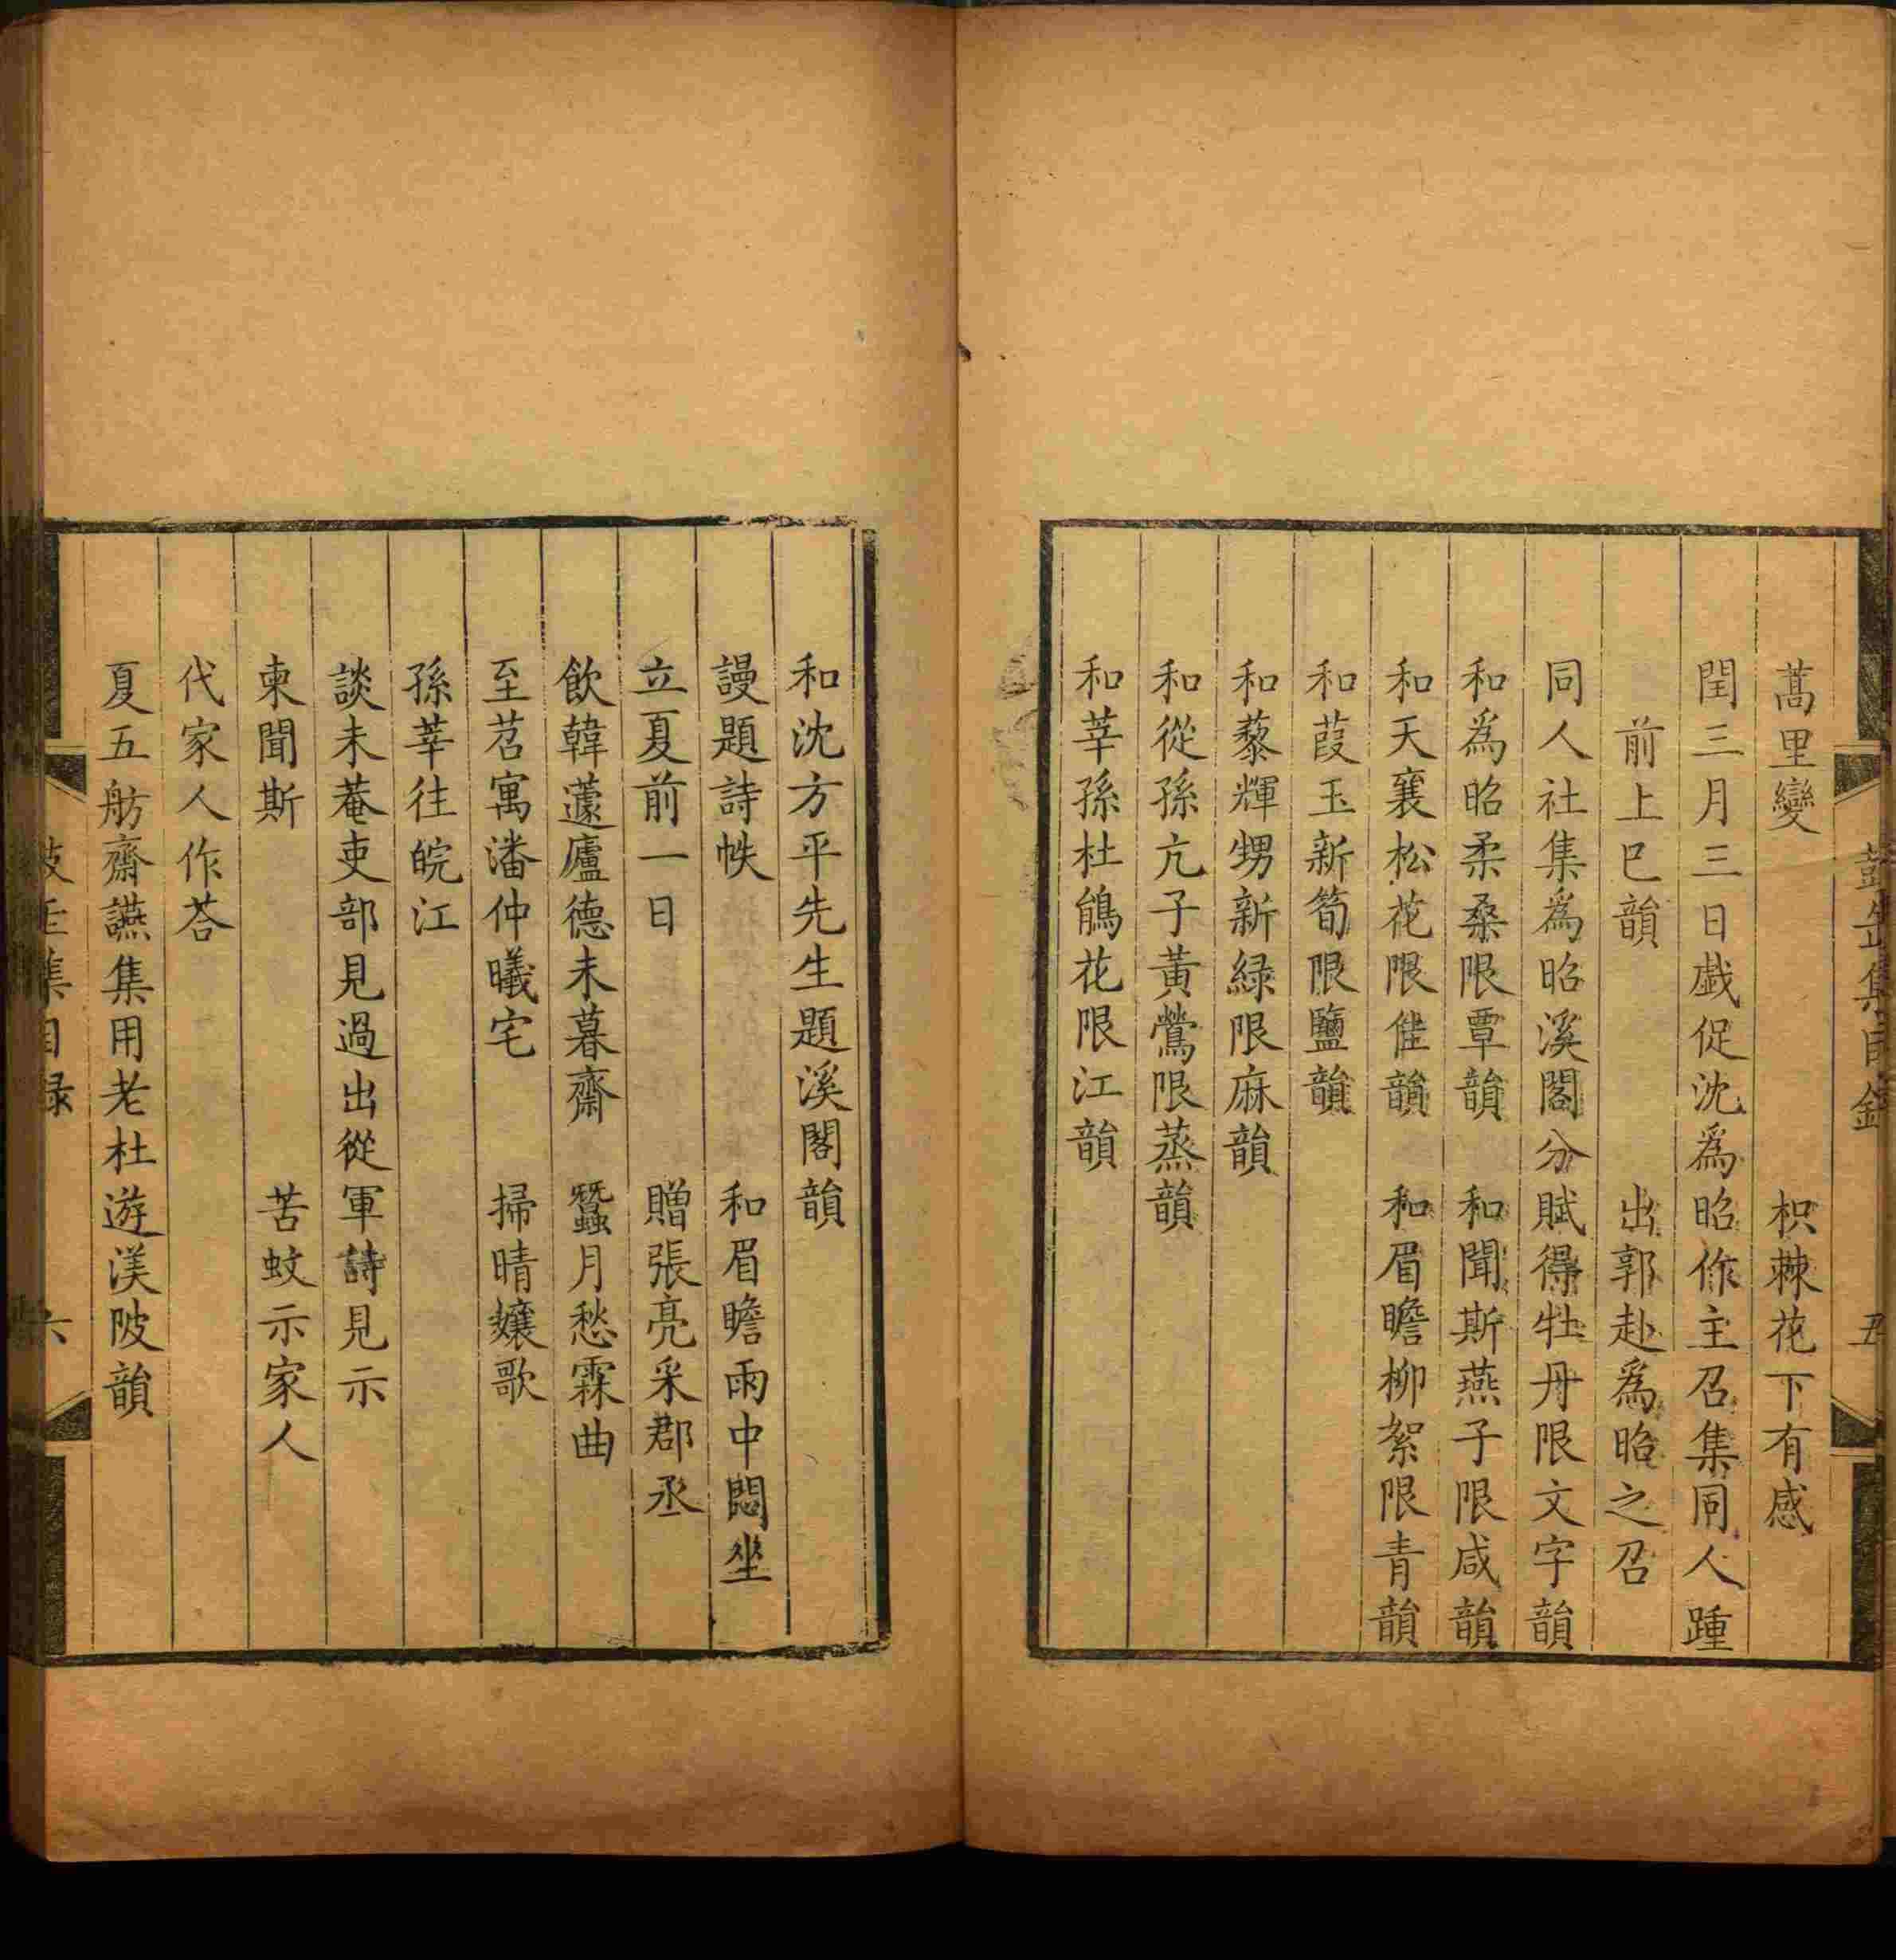 蒿里變　枳棘花下有感
閏三月三日戯促沈爲昭作主召集同人踵
前上巳韻　出郭赴爲昭之召
同人社集爲昭溪閣分賦得牡丹限文字韻
和爲昭柔桑限覃韻　和聞斯燕子限咸韻
和天襄松花限佳韻　和眉瞻柳絮限青韻
和葭玉新筍限鹽韻
和藜輝甥新緑限麻韻
和從孫亢子黃鶯限蒸韻
和莘孫杜鵑花限江韻
和沈方平先生題溪閣韻
謾題詩帙　和眉瞻雨中悶坐
立夏前一日　贈張亮采郡丞
飲韓蘧廬德未暮齋　蠶月愁霖曲
至苕寓潘仲曦宅　掃晴孃歌
孫莘往皖江
談未菴吏部見過出從軍詩見示
柬聞斯　苦蚊示家人
代家人作荅
夏五舫齋讌集用老杜遊渼陂韻
集目録
六